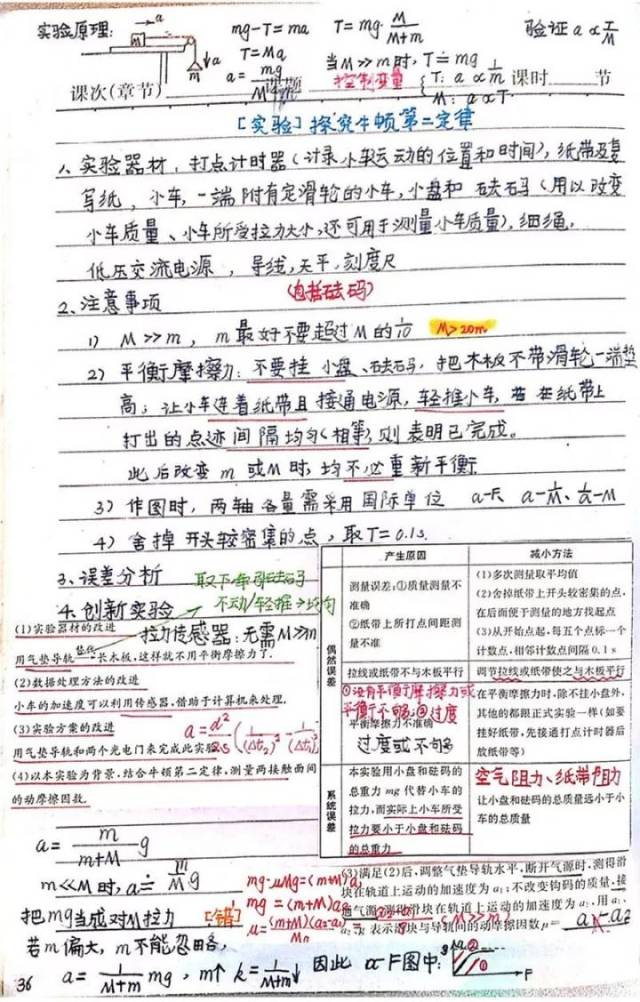 实验原理:
a
M
m
↓a
mg-T=ma T=mg·M/(M+m) 验证 a∝F/M
T=Ma 当M≫m时, T≐mg
控制变量 { T: a∝1/m
M: a∝T.
课次(章节) 课题 课时 节
[实验] 探究牛顿第二定律
1、实验器材, 打点计时器(计录小车运动的位置和时间), 纸带及复
写纸, 小车, 一端附有定滑轮的小车, 小盘和 砝码(用以改变
小车质量、小车所受拉力大小, 还可用于测量小车质量), 细绳,
低压交流电源, 导线, 天平, 刻度尺
(包括砝码)
2、注意事项
1) M≫m, m最好不要超过M的1/10 M>20m
2) 平衡摩擦力: 不要挂 小盘、砝码, 把木板不带滑轮一端垫
高; 让小车连着纸带且接通电源, 轻推小车, 若在纸带上
打出的点迹间隔均匀(相等), 则表明已完成。
此后改变m或M时, 均不必重新平衡
3) 作图时, 两轴各量需采用国际单位 a-F、a-1/M、a-M
4) 舍掉开头较密集的点, 取T=0.1s.
3、误差分析
不动/轻推→均匀
4. 创新实验
拉力传感器: 无需M≫m
(1)实验器材的改进
用气垫导轨 替代 长木板,这样就不用平衡摩擦力了.
(2)数据处理方法的改进
小车的加速度可以利用传感器,借助于计算机来处理.
(3)实验方案的改进
用气垫导轨和两个光电门来完成此实验.
a=d²/2s(1/(Δt₂)²-1/(Δt₁)²)
(4)以本实验为背景,结合牛顿第二定律,测量两接触面间
的动摩擦因数.
产生原因 减小方法
偶然误差
测量误差:①质量测量不
准确
②纸带上所打点间距测
量不准
(1)多次测量取平均值
(2)舍掉纸带上开头较密集的点,
在后面便于测量的地方找起点
(3)从开始点起,每五个点标一个
计数点,相邻计数点间隔0.1 s
拉线或纸带不与木板平行 调节拉线或纸带使之与木板平行
①没有平衡摩擦力或
平衡不够;②过度
平衡摩擦力不准确
过度或不够
在平衡摩擦力时,除不挂小盘外,
其他的都跟正式实验一样(如要
挂好纸带,先接通打点计时器后
放纸带等)
系统误差
本实验用小盘和砝码的
总重力mg代替小车的
拉力,而实际上小车所受
拉力要小于小盘和砝码
的总重力
空气阻力、纸带阻力
让小盘和砝码的总质量远小于小
车的总质量
a=m/(m+M) g
m≪M时, a≐m/M g
mg-μMg=(m+M)a₁
mg=(m+M)a₂
(3)满足(2)后,调整气垫导轨水平,断开气源时,测得滑
块在轨道上运动的加速度为a₁;不改变钩码的质量,接
通气源,测得滑块在轨道上运动的加速度为a₂.用a₁、
表示滑块与导轨间的动摩擦因数μ=
(M≫m)
把mg当成对M拉力 [错]
若m偏大, m不能忽略,
a=1/(M+m) mg, m↑ k=1/(M+m)↓ 因此 a-F图中:
F
36